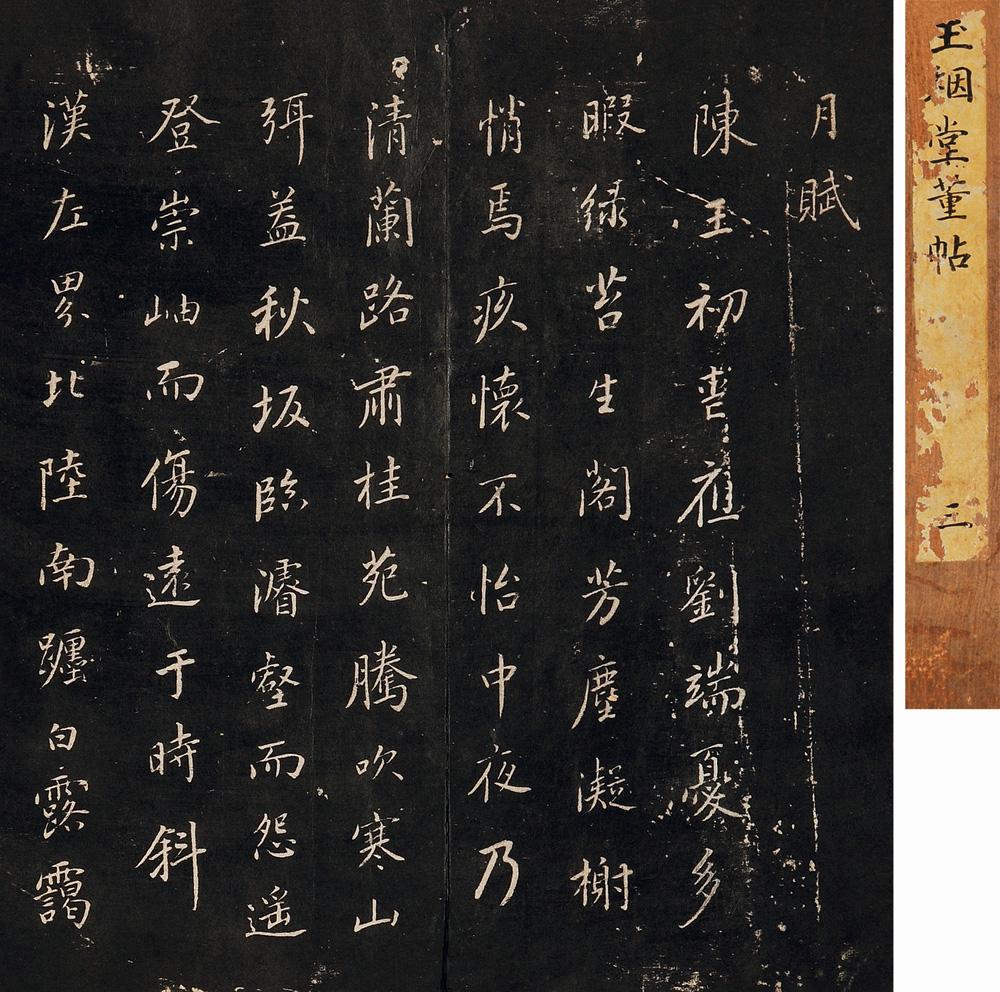 玉烟堂董帖 三
月賦
陳王初喪應劉端憂多
暇緑苔生閣芳塵凝榭
悄焉疚懷不怡中夜乃
清蘭路肅桂苑騰吹寒山
弭蓋秋坂臨濬壑而怨遥
登崇岫而傷遠于時斜
漢左界北陸南躔白露靄